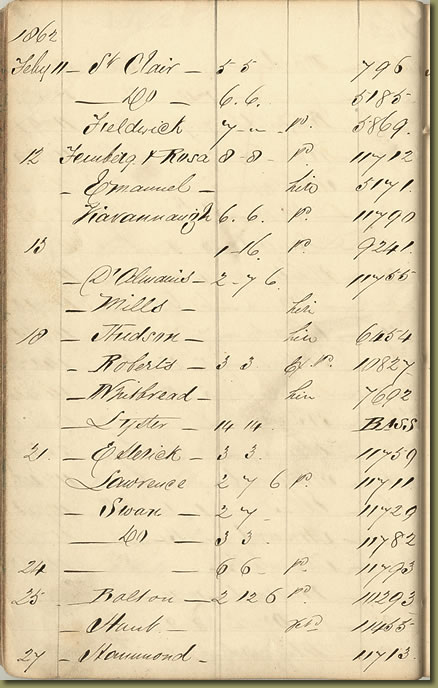 1862
Feby 11 - St Clair - 5 5 796
- Do - 6. 6. 5185
Fieldwick 7 - " - pd. 5869.
12 & Rosa 8 - 8 - pd. 11712
- Emanuel - hire 5171.
6. 6. pd. 11790
13 1 - 16. pd. 9241.
- D'Almaine - 2 - 7 6. 11755
- Mills - hire
18 - Hudson - hire 6454
- Roberts - 3 3 10827
- Whitbread - hire 7692
- Lyster - 14 14. BASS
21. - Ederick - 3 3. 11759
Lawrence 2 7 6 pd. 11711
- Swan - 2 7 - 11729
- Do - 3 3. 11782
24 - 6 6 - pd. 11793
25 - Bolton - 2 12 6 pd. 11293
- - 11455
27 - Hammond - 11713.